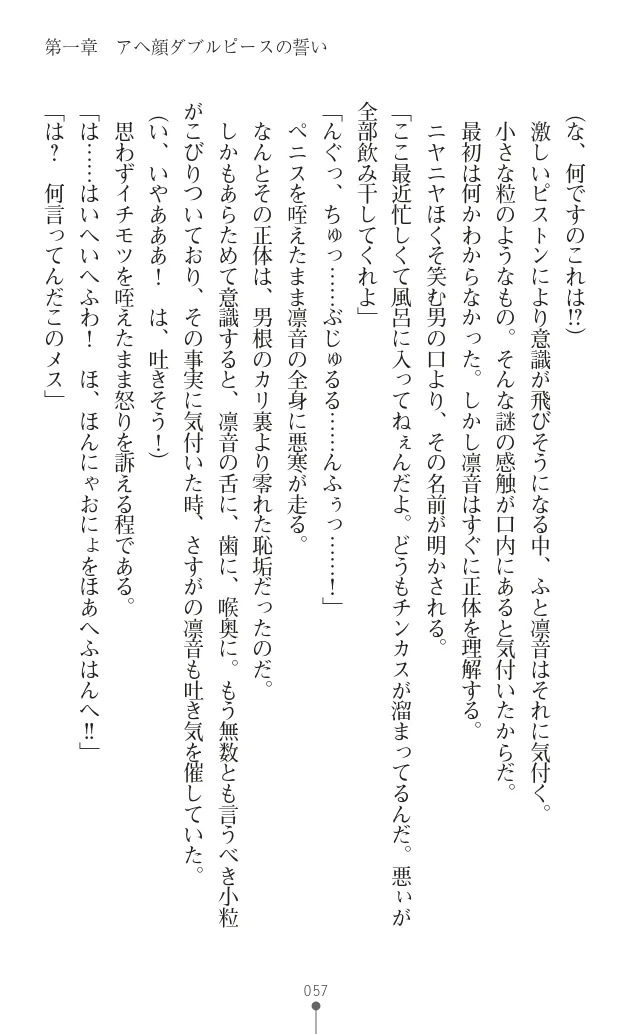 第一章　アヘ顔ダブルピースの誓い
(な、何ですのこれは!?)
　激しいピストンにより意識が飛びそうになる中、ふと凛音はそれに気付く。
　小さな粒のようなもの。そんな謎の感触が口内にあると気付いたからだ。
　最初は何かわからなかった。しかし凛音はすぐに正体を理解する。
　ニヤニヤほくそ笑む男の口より、その名前が明かされる。
「ここ最近忙しくて風呂に入ってねぇんだよ。どうもチンカスが溜まってるんだ。悪ぃが
全部飲み干してくれよ」
「んぐっ、ちゅっ……ぶじゅるる……んふぅっ……！」
　ペニスを咥えたまま凛音の全身に悪寒が走る。
　なんとその正体は、男根のカリ裏より零れた恥垢だったのだ。
　しかもあらためて意識すると、凛音の舌に、歯に、喉奥に。もう無数とも言うべき小粒
がこびりついており、その事実に気付いた時、さすがの凛音も吐き気を催していた。
(い、いやあああ！　は、吐きそう！)
　思わずイチモツを咥えたまま怒りを訴える程である。
「は……はいへいへふわ！　ほ、ほんにゃおにょをほあへふはんへ!!」
「は？　何言ってんだこのメス」
057